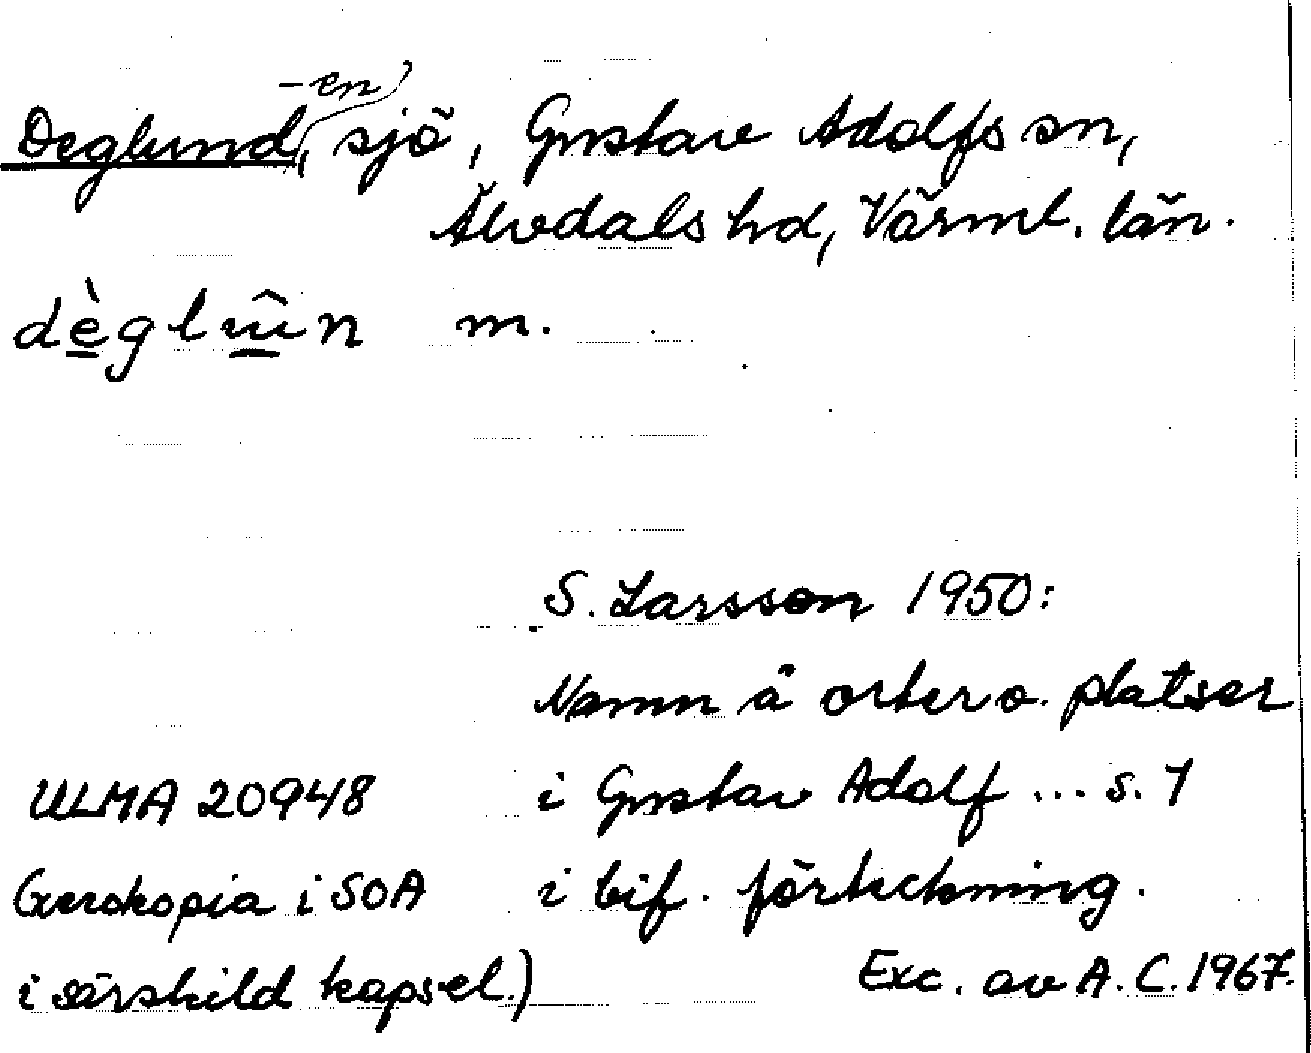 Deglund, -en, sjö, Gustav Adolfs sn,
Älvdals hd, Värml. län.
dèglûn m.
S. Larsson 1950:
Namn å orter o. platser
ULMA 20948 i Gustav Adolf ... s. 1
(xerokopia i SOA i bif. förteckning.
i särskild kapsel.) Exc. av A. C. 1967.